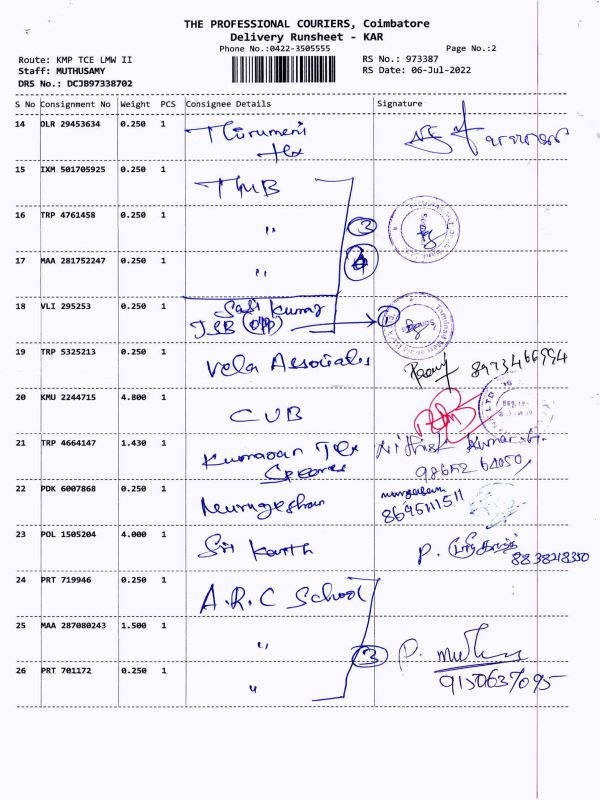 THE PROFESSIONAL COURIERS, Coimbatore
Delivery Runsheet - KAR
Phone No.:0422-3505555
Page No.:2
Route: KMP TCE LMW II
RS No.: 973387
Staff: MUTHUSAMY
RS Date: 06-Jul-2022
DRS No.: DCJB97338702
S No Consignment No Weight PCS Consignee Details Signature
14 DLR 29453634 0.250 1 Thirumeni
tex
15 IXM 501705925 0.250 1 TMB
16 TRP 4761458 0.250 1 " 3
17 MAA 281752247 0.250 1 "
18 VLI 295253 0.250 1 Sasi Kumar
TSB (OPP) 1
19 TRP 5325213 0.250 1 Vela Associates 8973466994
20 KMU 2244715 4.800 1 CUB
21 TRP 4664147 1.430 1 Kumaran Tex Nithish Kumar
98652 64050
22 PDK 6007868 0.250 1 Murugeshan murugesan
8695111511
23 POL 1505204 4.000 1 Sri Karthi P.
8838218350
24 PRT 719946 0.250 1 A.R.C School
25 MAA 287080243 1.500 1 " 3 P. muthu
26 PRT 701172 0.250 1 " 9150637095